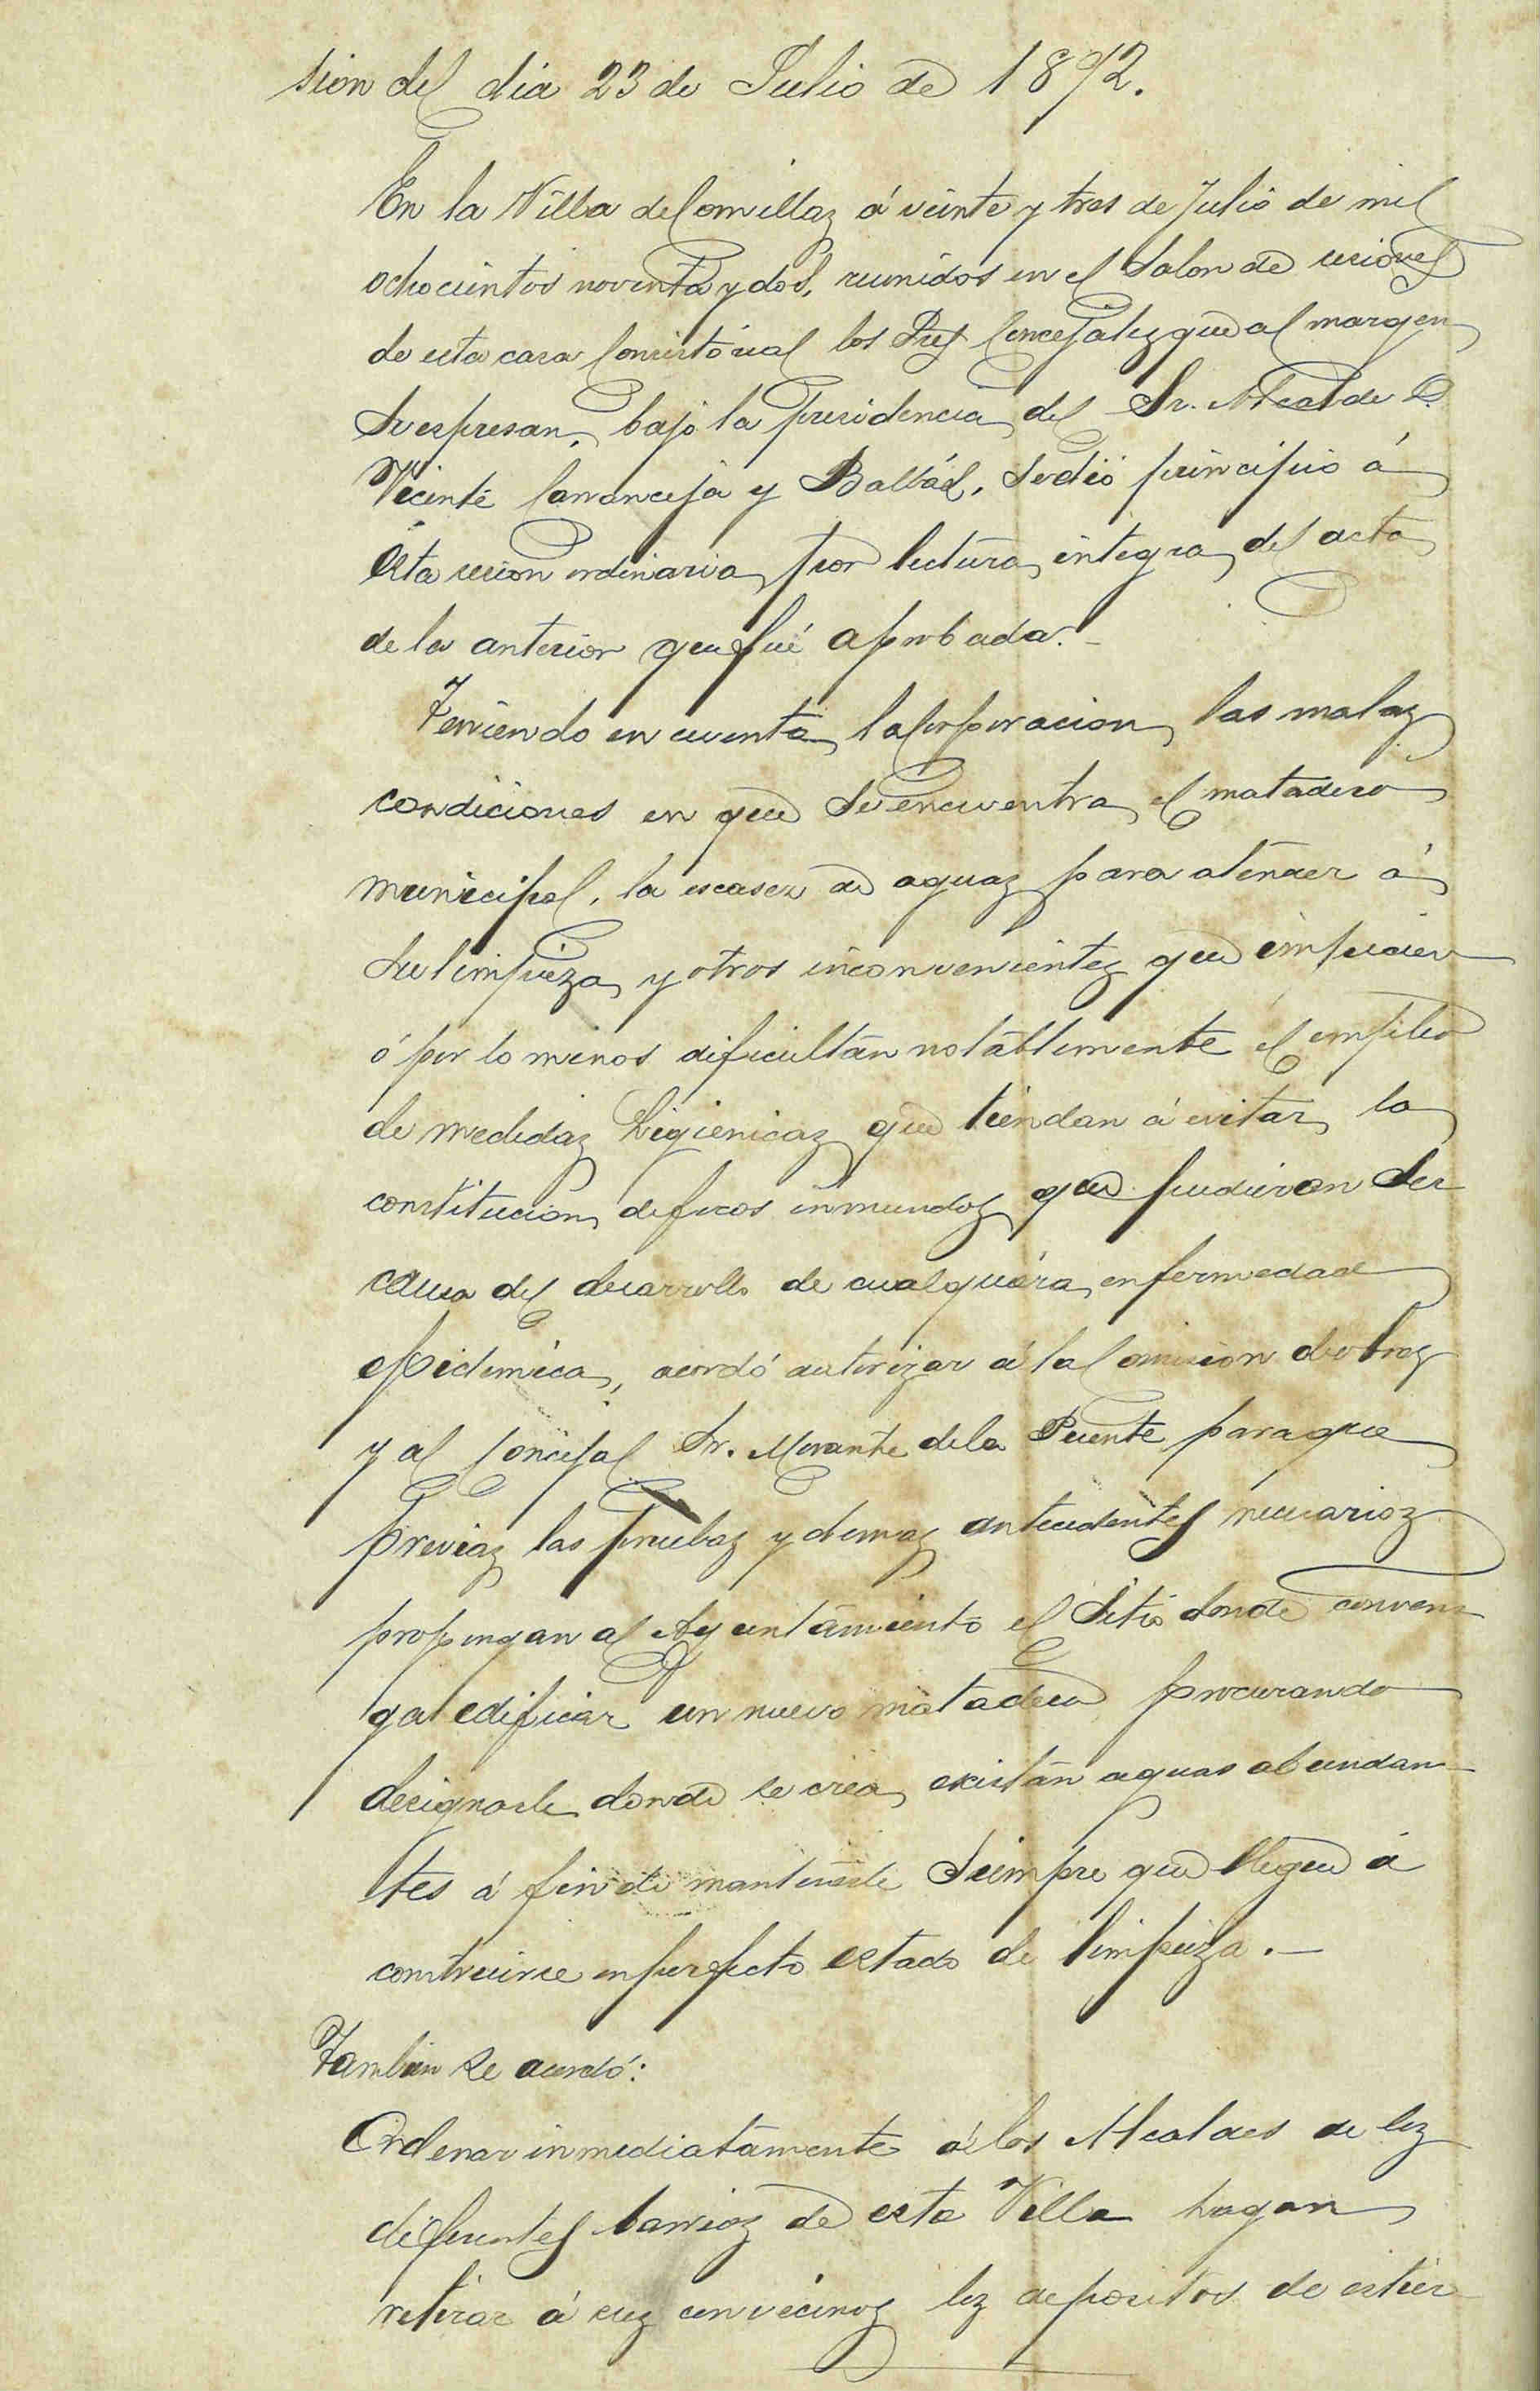 sion del dia 23 de Julio de 1892.
En la Villa de Comillas á veinte y tres de Julio de mil
ochocientos noventa y dos, reunidos en el Salon de sesiones
de esta casa Consistorial los Sres Concejales que al margen
se espresan, bajo la presidencia del Sr. Alcalde D.
Vicente Carranceja y Ballás, se dió principio á
ésta sesion ordinaria por lectura integra del acta
de la anterior que fué aprobada.-
Teniendo en cuenta la Corporacion las malas
condiciones en que se encuentra el matadero
municipal, la escasez de aguas para atender á
su limpieza y otros inconvenientes que impiden
ó por lo menos dificultan notablemente el empleo
de medidas higienicas que tiendan á evitar la
constitucion de focos inmundos que pudieran ser
causa del desarrollo de cualquiera enfermedad
epidemica, acordó autorizar á la Comision de obras
y al Concejal Sr. Morante de la Puente para que
previas las pruebas y demas antecedentes necesarios
propongan al Ayuntamiento el sitio donde conven-
ga edificar un nuevo matadero procurando
designarle donde se crea existan aguas abundan-
tes á fin de mantenerle siempre que llegue á
construirse en perfecto estado de limpieza.-
Tambien se acordó:
Ordenar inmediatamente á los Alcaldes de los
diferentes barrios de esta Villa hagan
retirar á sus convecinos los depositos de estier-